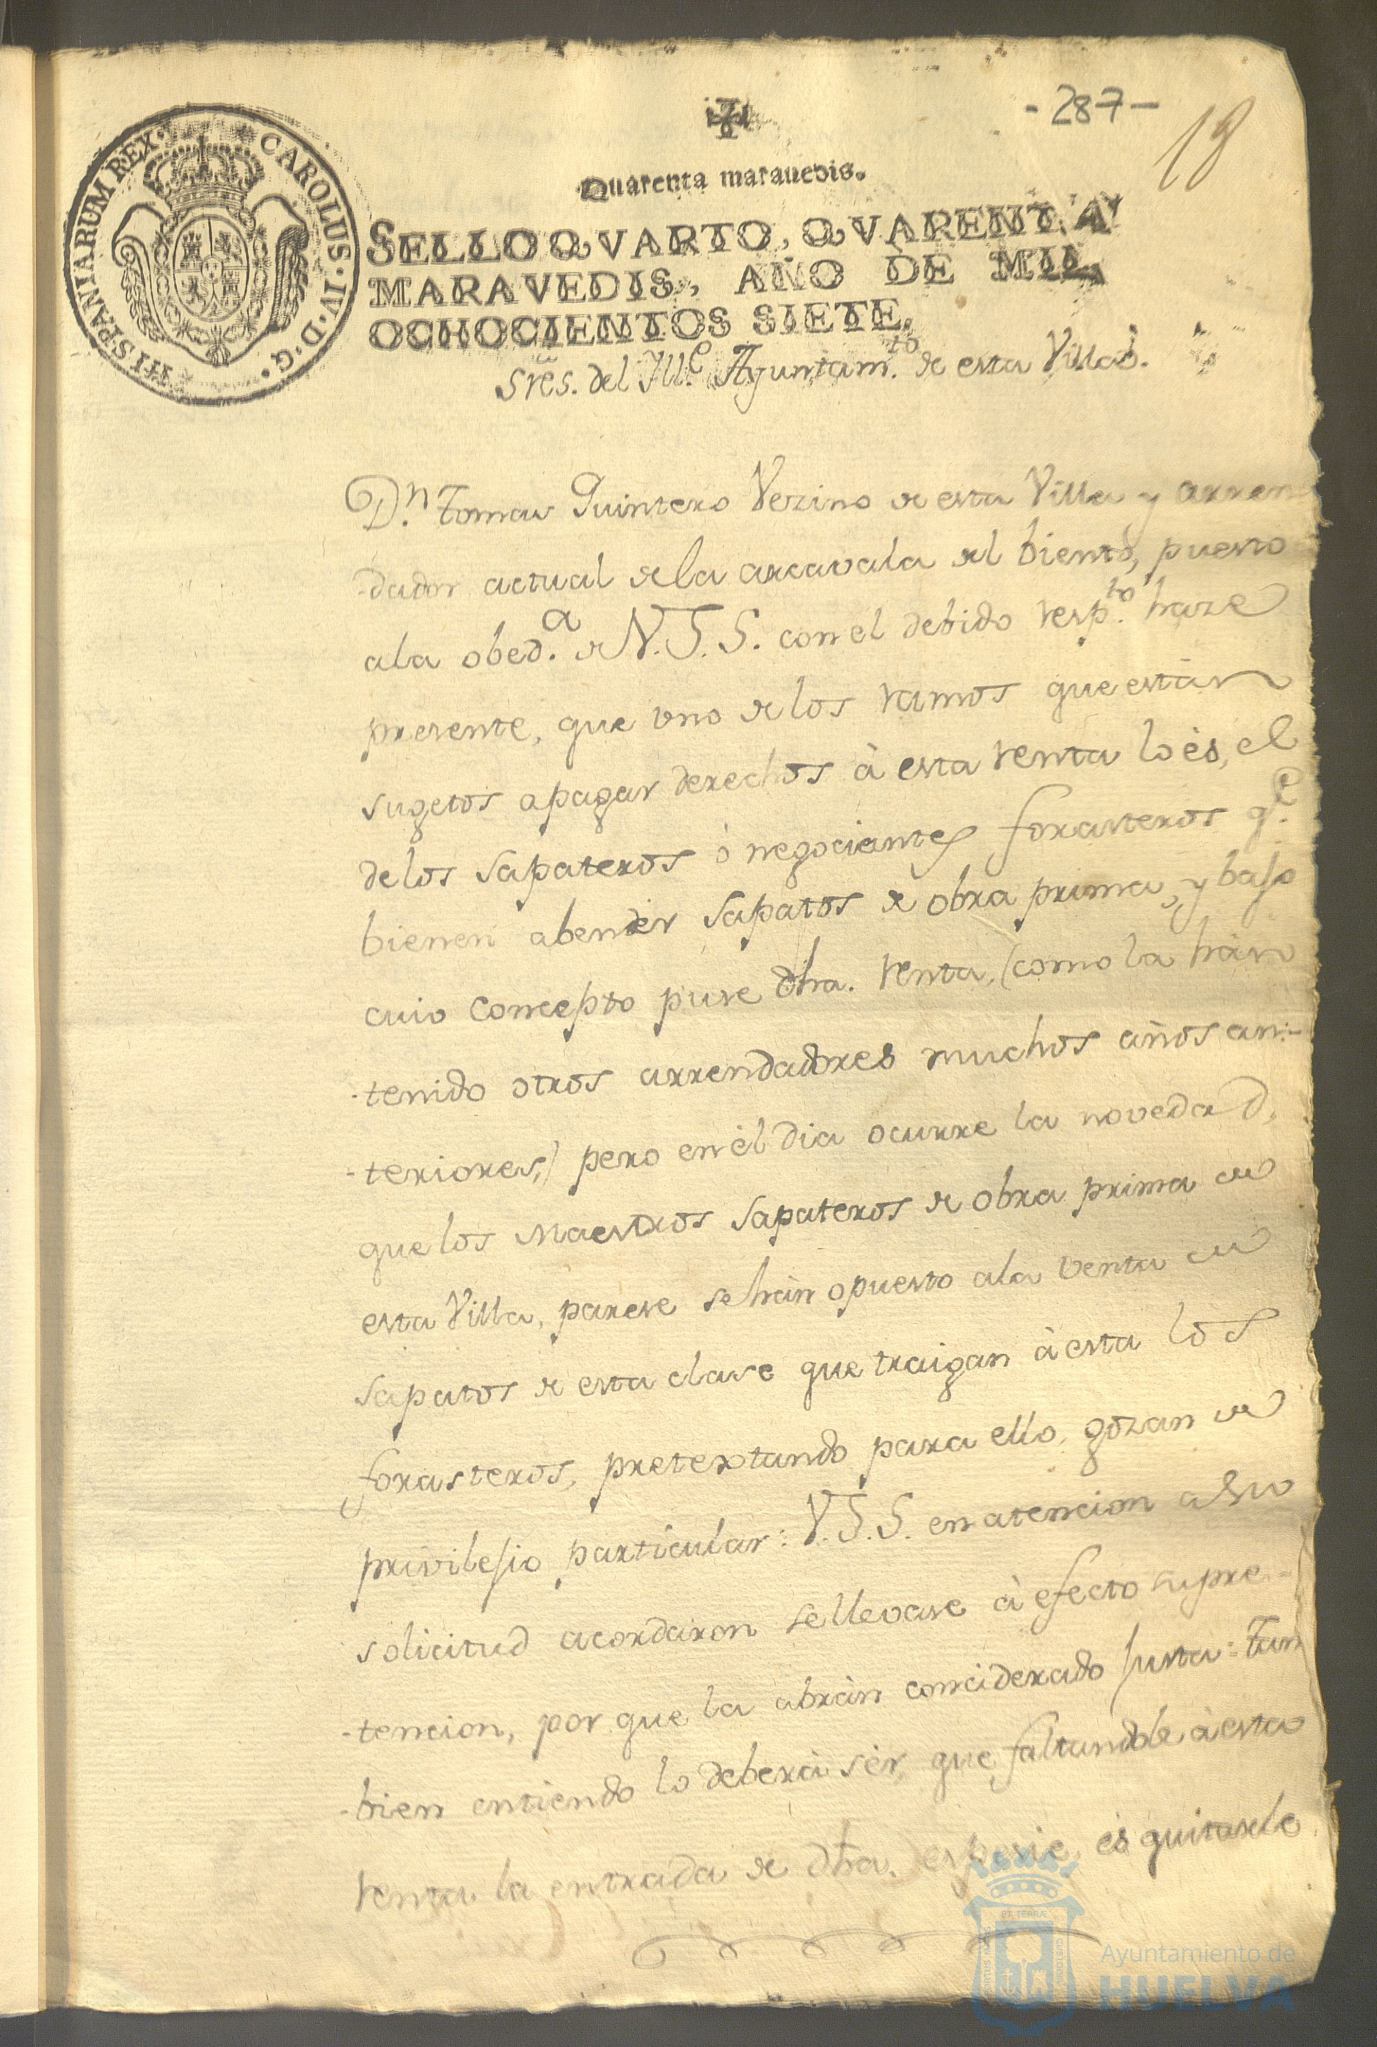 -287-
18
CAROLUS·IV·D·G· HISPANIARUM REX·
Quarenta maravedis.
SELLO QVARTO, QVARENTA
MARAVEDIS, AÑO DE MIL
OCHOCIENTOS SIETE.
Sres. del Yll.e Ayuntam.to de esta Villa.
D.n Tomas Quintero Vezino de esta Villa y arren
-dador actual de la arcavala del biento, puesto
ala obed.a de V.S.S. con el debido resp.to haze
presente, que vno de los ramos que están
sugetos a pagar derechos à esta renta lo ès, el
de los sapateros ò negociantes forasteros q.e
bienen abender sapatos de obra prima, y bajo
cuio concepto puse dha. renta, (como la hàn
-tenido otros arrendadores muchos años an:-
-teriores,) pero en èl dia ocurre la novedad,
que los Maestros sapateros de obra prima de
esta Villa, parese se hàn opuesto ala venta de
sapatos de esta clase que traigan à esta los
forasteros, pretextando para ello, gozan de
privilejio particular: V.S.S. en atencion a su
solicitud acordaron se llevase à efecto su pre-
-tencion, por que la abràn conciderado justa: Tan
-bien entiendo lo deberà sèr, que faltandole à esta
renta la entrada de dha. espesie, ès quitarle
Ayuntamiento de
HUELVA